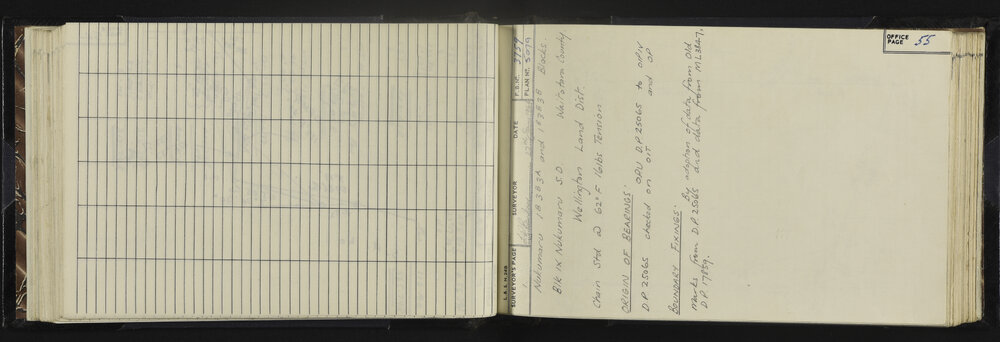 OFFICE PAGE 55
L. & S. H. 24B
SURVEYOR'S PAGE
SURVEYOR
DATE
F.B. Nº. 3759
PLAN Nº. 5079
1.
Nukumaru 1B3B3A and 1B3B3B Blocks.
Blk IX Nukumaru S.D. Waitotara County
Wellington Land Dist.
Chain Std @ 62° F 16lbs Tension
ORIGIN OF BEARINGS.
D.P. 25065 OPU D.P. 25065 to OPIV
checked on OIT and OP
BOUNDARY FIXINGS.
By adoption of data from Old
Marks from D.P. 25065 and data from ML3827.
D.P. 17859.